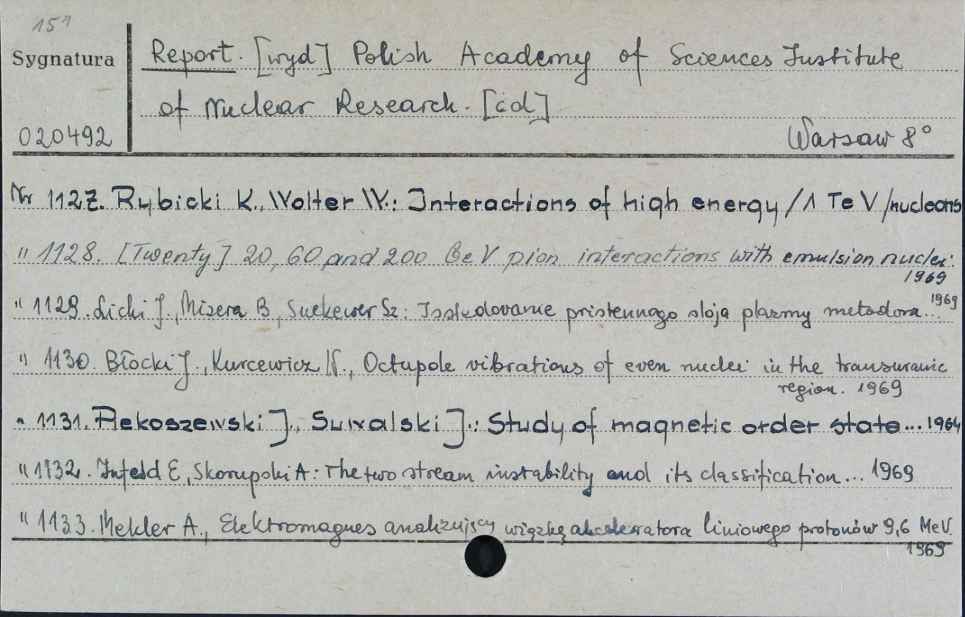 15"
Sygnatura
020492
Report. [wyd] Polish Academy of Sciences Institute
of Nuclear Research. [cd]
Warsaw 8°
Nr 1127. Rybicki K., Wolter W.: Interactions of high energy /1 TeV/nucleons
" 1128. [Twenty] 20, 60 and 200 GeV pion interactions with emulsion nuclei.
1969
" 1129. Licki J., Mizera B., Suckewer Sz: Issledovanie pristennogo sloja plazmy metodom... 1969
" 1130. Błocki J., Kurcewicz W., Octupole vibrations of even nuclei in the transuranic
region. 1969
" 1131. Rekoszewski J., Suwalski J.: Study of magnetic order state... 1964
" 1132. Infeld E, Skorupski A: The two stream instability and its classification... 1969
" 1133. Mekler A., Elektromagnes analizujący wiązkę akceleratora liniowego protonów 9,6 MeV.
1969